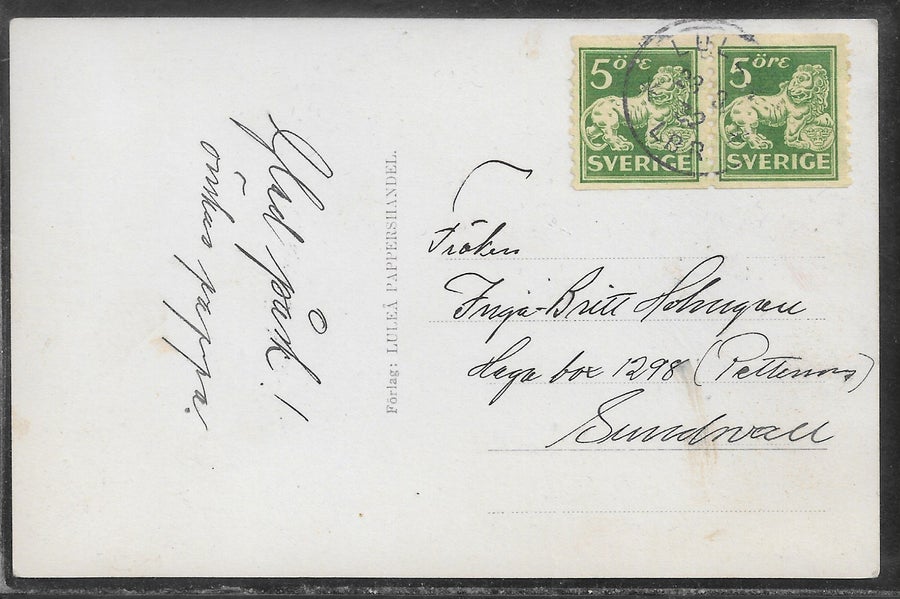 Glad påsk!
önskas pappa.
Förlag: LULEÅ PAPPERSHANDEL.
5 öre
SVERIGE
5 öre
SVERIGE
LUL
LBR
Fröken
Inga-Britt Holmgren
Haga box 1298 (Petterson)
Sundsvall